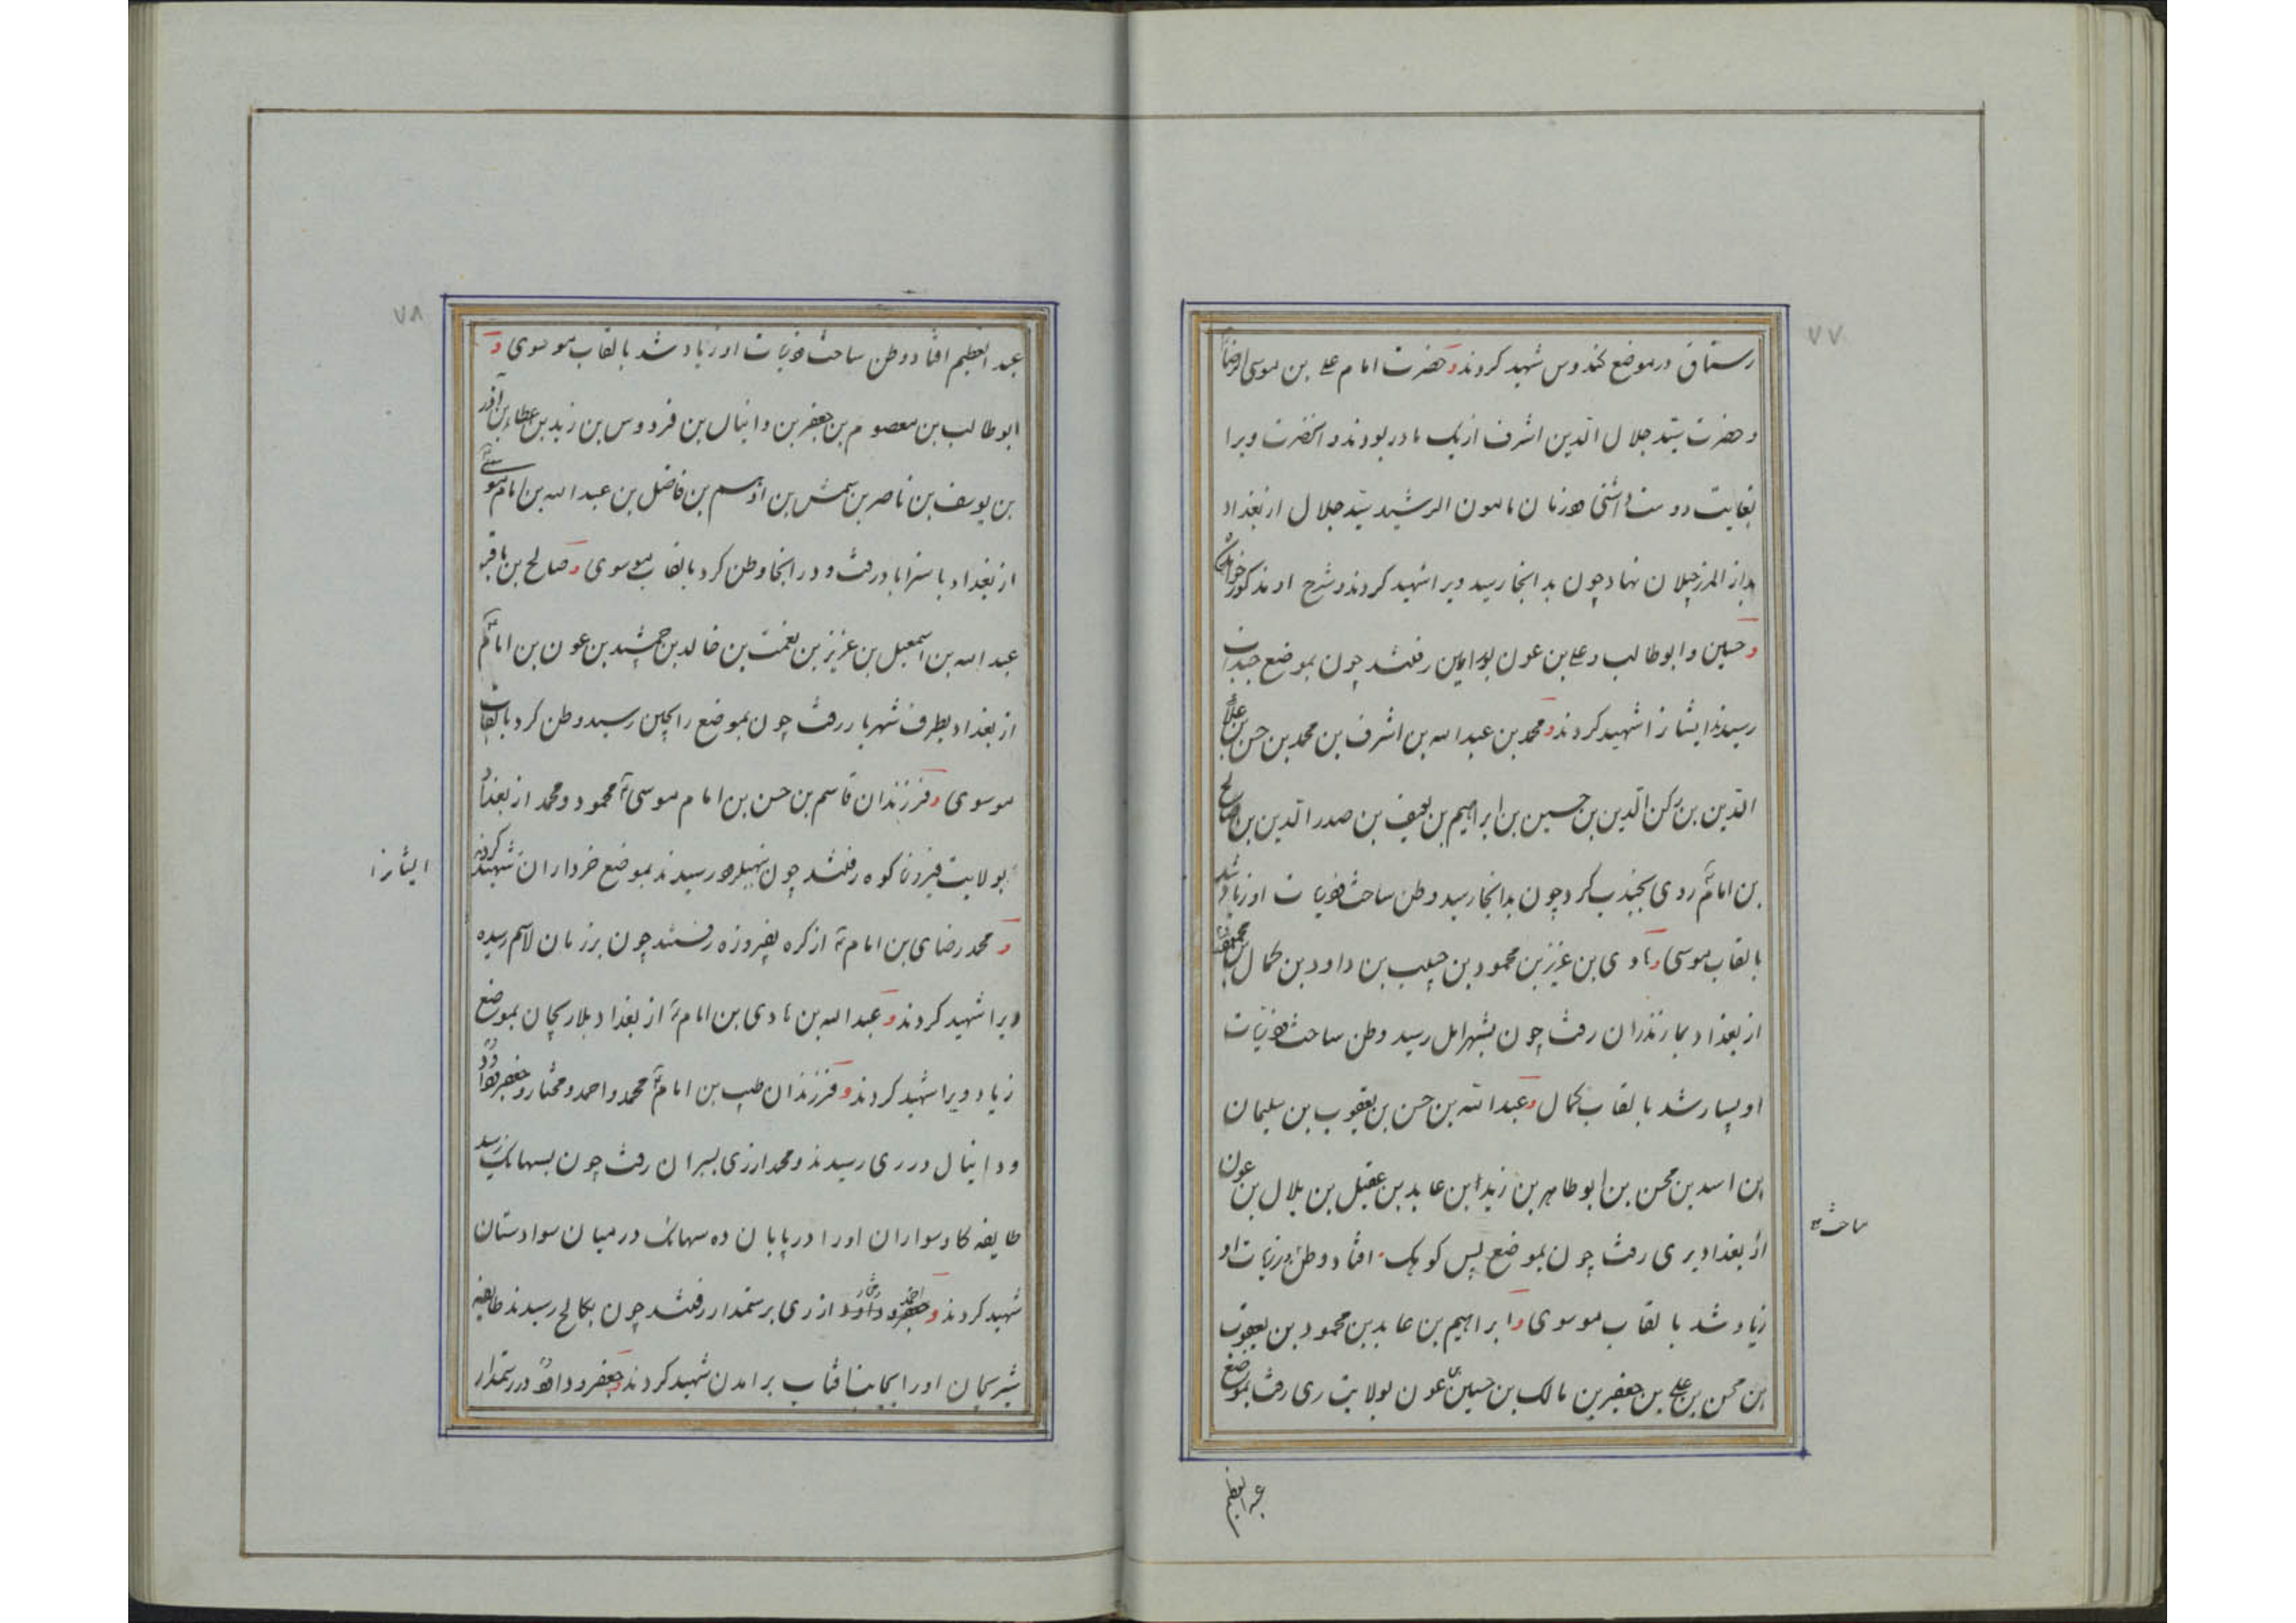 ۷۷
رستاق در موضع کندوس شهید کردند و حضرت امام علی بن موسی الرضا
و حضرت سید جلال الدین اشرف از یک مادر بودند و آنحضرت ویرا
بغایت دوست داشتی در زمان مامون الرشید سید جلال از بغداد
نهاد چون بدانجا رسید ویرا شهید کردند و شرح او مذکور خواهد
و حسین و ابوطالب و علی بن عون رفتند چون بموضع
رسیدند ایشانرا شهید کردند و محمد بن عبدالله بن اشرف بن محمد بن حسن بن علاء
الدین بن رکن الدین بن حسین بن ابراهیم بن بن صدر الدین بن صالح
بن امام روی کرد چون بدانجا رسید وطن ساخت ذریات او زیاد شد
بالقاب موسی و هادی بن عزیز بن محمود بن بن داود بن کمال بن
از بغداد بمازندران رفت چون بشهر امل رسید وطن ساخت ذریات
او بسیار شد بالقاب کمال و عبدالله بن حسن بن یعقوب بن سلیمان
بن اسد بن محسن بن ابوطاهر بن زید ابن عابد بن عقیل بن بلال بن عون
از بغداد بری رفت چون بموضع پس کوهک افتاد و وطن ذریات او
ساخت
زیاد شد بالقاب موسوی و ابراهیم بن عابد بن محمود بن یعقوب
بن محسن بن علی بن جعفر بن مالک بن حسین بن عون بولایت ری رفت بموضع
عبدالعظیم
۷۸
عبدالعظیم افتاد و وطن ساخت ذریات او زیاد شد بالقاب موسوی و
ابوطالب بن معصوم بن جعفر بن دانیال بن فردوس بن زید بن عطاء بن آذر
بن یوسف بن ناصر بن شمش بن ادهم بن فاضل بن عبدالله بن امام موسی
از بغداد باستراباد رفت و در انجا وطن کرد بالقاب موسوی و صالح بن باقر
عبدالله بن اسمعیل بن عزیز بن نعمت بن خالد بن جمشید بن عون بن امام
از بغداد بطرف شهریار رفت چون بموضع رسید وطن کرد بالقاب
موسوی و فرزندان قاسم بن حسن بن امام موسی محمود و محمد از بغداد
بولایت فیروزکوه رفتند چون رسیدند بموضع خرداران شهید کردند
ایشانرا
و محمد رضای بن امام از کره بفیروزه رفتند چون برزمان لاسم رسیده
ویرا شهید کردند و عبدالله بن هادی بن امام از بغداد بلاریجان بموضع
زیاد ویرا شهید کردند و فرزندان طیب بن امام محمد و احمد و مختار و جعفر و داود
و دانیال در ری رسیدند و محمد از ری بسیران رفت چون بسهانک رسید
طایفه کادسواران او را در پایان ده سهانک در میان سوادستان
شهید کردند و احمد و مختار از ری برستمدار رفتند چون بکالج رسیدند طایفه
شیریجان او را بجانب آفتاب برامدن شهید کردند و جعفر و داود در رستمدار